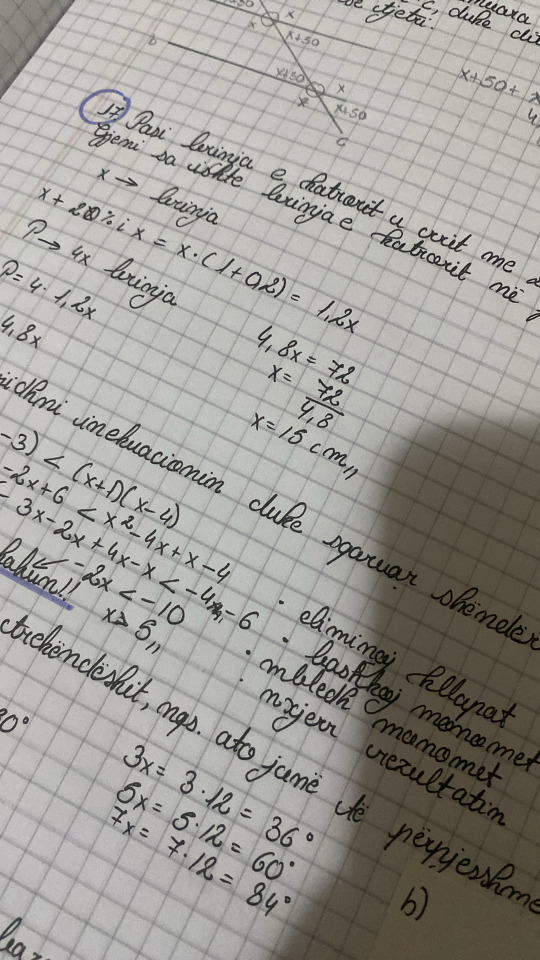 duke dit
tjetri.
x+50
x
x
x+50
x+50+
x+50
x
x
x+50
C
17. Pasi brinja e katrorit u rrit me
Gjeni sa ishte brinja e katrorit në
x → brinja
x + 20% i x = x · (1+0,2) = 1,2x
P → 4x brinja
P = 4 · 1,2x
4,8x
4,8x = 72
x = 72/4,8
x = 15 cm,,
inekuacionin duke sqaruar
-3) < (x+1)(x-4)
-2x+6 < x²-4x+x-4
3x-2x+4x-x < -4-6
-2x < -10
x > 5,,
· eliminoj kllapat
· bashkoj monomet
· mbledh monomet
· nxjerr rezultatin
trekëndëshit, nqs. ato janë të përpjesshme
3x = 3·12 = 36°
5x = 5·12 = 60°
7x = 7·12 = 84°
b)